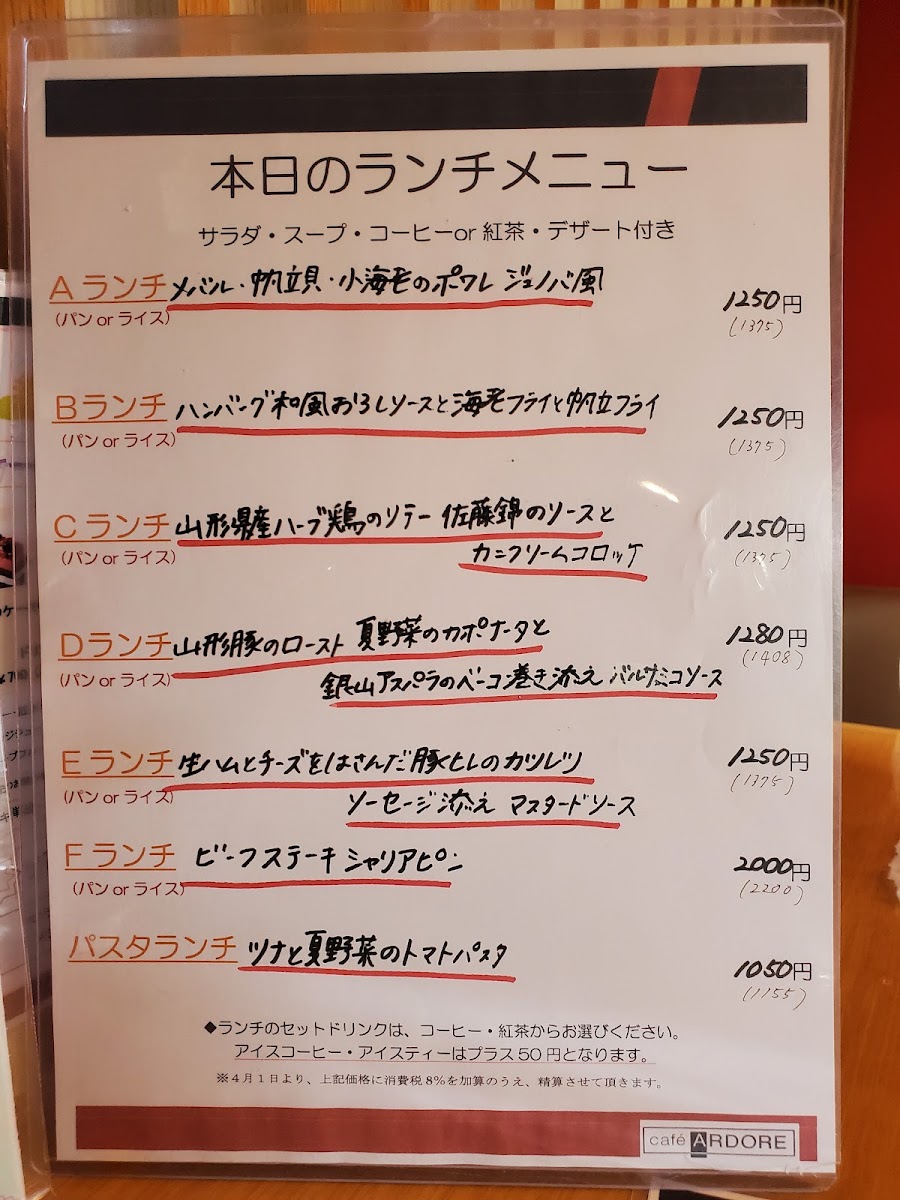 本日のランチメニュー
サラダ・スープ・コーヒーor 紅茶・デザート付き
Aランチ メバル・帆立貝・小海老のポワレ ジェノバ風
(パン or ライス)
1250円
(1375)
Bランチ ハンバーグ和風おろしソースと海老フライと帆立フライ
(パン or ライス)
1250円
(1375)
Cランチ 山形県産ハーブ鶏のソテー 佐藤錦のソースと
カニクリームコロッケ
(パン or ライス)
1250円
(1375)
Dランチ 山形豚のロースト 夏野菜のカポナータと
銀山アスパラのベーコン巻き添え バルサミコソース
(パン or ライス)
1280円
(1408)
Eランチ 生ハムとチーズをはさんだ豚ヒレのカツレツ
ソーセージ添え マスタードソース
(パン or ライス)
1250円
(1375)
Fランチ ビーフステーキ シャリアピン
(パン or ライス)
2000円
(2200)
パスタランチ ツナと夏野菜のトマトパスタ
1050円
(1155)
◆ランチのセットドリンクは、コーヒー・紅茶からお選びください。
アイスコーヒー・アイスティーはプラス50円となります。
※4月1日より、上記価格に消費税8%を加算のうえ、精算させて頂きます。
café ARDORE